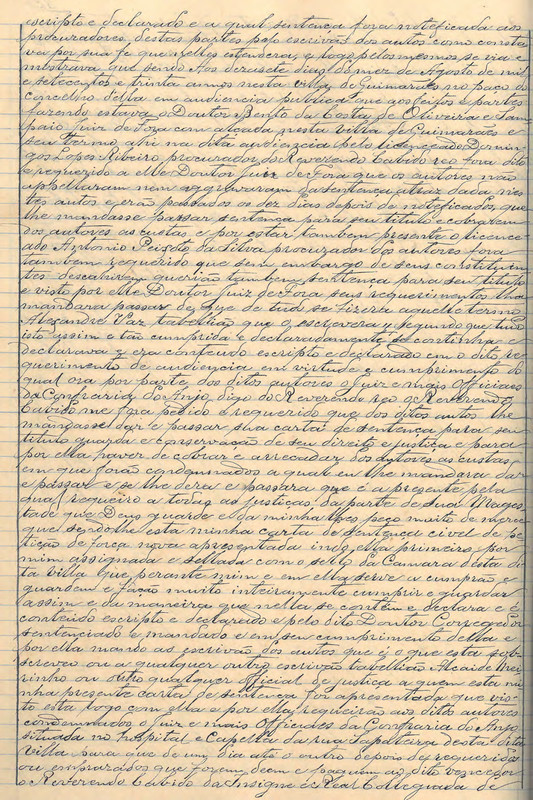 escripto e declarado e a qual sentença fora noteficada aos
procuradores destas partes pelo escrivão dos autos como consta
va por sua fe que nelles estendera, e logo pelos mesmos se via e
mostrava que sendo aos dezasete dias do mez de Agosto de mil
e setecentos e trinta annos nesta villa de Guimarães no paço do
concelho della em audiencia publica que aos feitos e partes
fazendo estava o Doutor Bento da Costa de Oliveira e Sam
paio juiz de Fora com alçada nesta villa de Guimarães e
seu termo ahi na dita audiencia pelo licenceado Domin
gos Lopes Ribeiro procurador do Reverendo Cabido reo fora dito
e requerido a elle Doutor Juiz de Fora que os autores não
appellaram nem aggravaram da sentença atraz dada nes
tes autos e erão passados os dez dias depois de noteficados que
lhe mandasse passar sentença para seu titulo e cobrarem
dos autores as custas e por estar tambem presente o licence
ado Antonio Peixoto da Silva procurador dos autores fora
tambem requerido que sem embargo de seus constituin
tes descahirem querião tambem sentença para seu titulo
e visto por elle Doutor Juiz de Fora seus requerimentos lha
mandara passar de que de tudo se fizera aquelle termo
Alexandre Vaz tabellião que o escrevera, e segundo que tudo
isto assim e tão cumprida e declaradamente se continha e
declarava e era conteudo escripto e declarado em o dito re
querimento de audiencia em virtude e cumprimento do
qual ora por parte dos ditos autores o Juiz e mais Officiaes
da Confraria do Anjo, digo do Reverendo reo o Reverendo
Cabido me fora pedido e requerido que dos ditos autos lhe
mandasse dar e passar sua carta de sentença para seu
titulo guarda e conservação de seu direito e justiça e para
por ella haver de cobrar e arrecadar dos autores as custas
em que forão condemnados a qual eu lhe mandara dar
e passar e se lhe dera e passara que é a presente pela
qual requeiro a todas as justiças da parte de Sua Mages
tade que Deus guarde e da minha lhes peço muito de merce
que sendo-lhe esta minha carta de sentença civel de pe
tição de força nova apresentada indo ella primeiro por
mim assignada e sellada com o sello da Camara desta di
ta villa que perante mim e em ella serve a cumprão e
guardem e fação muito inteiramente cumprir e guardar
assim e da maneira que nella se contem e declara e é
conteudo escripto e declarado e pelo dito Doutor Corregedor
sentenciado e mandado e em seu cumprimento della e
por ella mando ao escrivão dos autos que é o que esta sob
screveo ou a qualquer outro escrivão tabellião Alcaide Mei
rinho ou outro qualquer official de justiça a quem esta mi
nha presente carta de sentença for apresentada que vis
to esta logo com ella e por ella requeirão aos ditos autores
condemnados o Juiz e mais Officiaes da Confraria do Anjo
situada no Hospital e Capella da rua Sapateira desta dita
villa para que de um dia até o outro depois de requeridos
ou emprazados que forem deem e paguem ao dito vencedor
o Reverendo Cabido da Insigne e Real Collegiada de